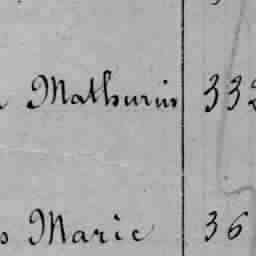 Mathurin 332
Marie 36